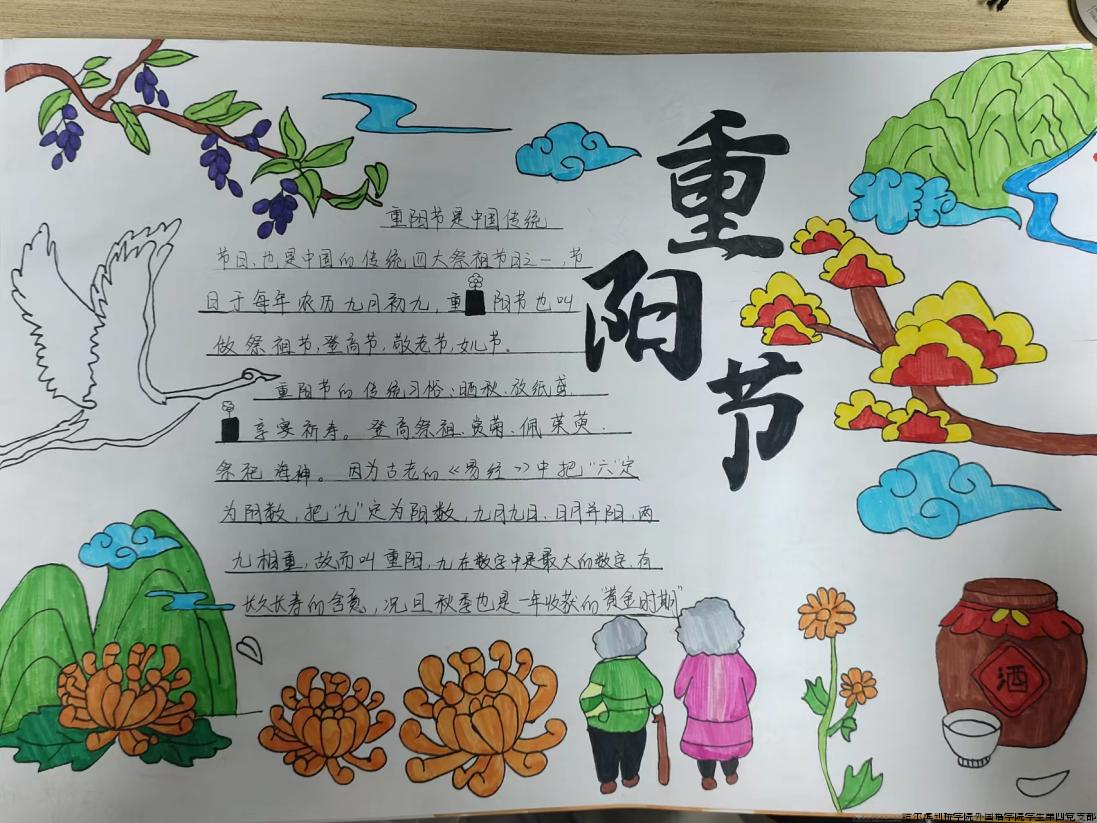 重
阳
节
重阳节是中国传统
节日、也是中国的传统四大祭祖节日之一,节
日于每年农历九月初九,重阳节也叫
做祭祖节,登高节,敬老节,女儿节。
重阳节的传统习俗:晒秋、放纸鸢、
享宴祈寿。登高祭祖、赏菊、佩茱萸、
祭祀海神。因为古老的《易经》中把"六"定
为阴数,把"九"定为阳数,九月九日、日月并阳,两
九相重,故而叫重阳,九在数字中是最大的数字,有
长久长寿的含意,况且秋季也是一年收获的"黄金时期"
酒
外国语学院学生第四党支部